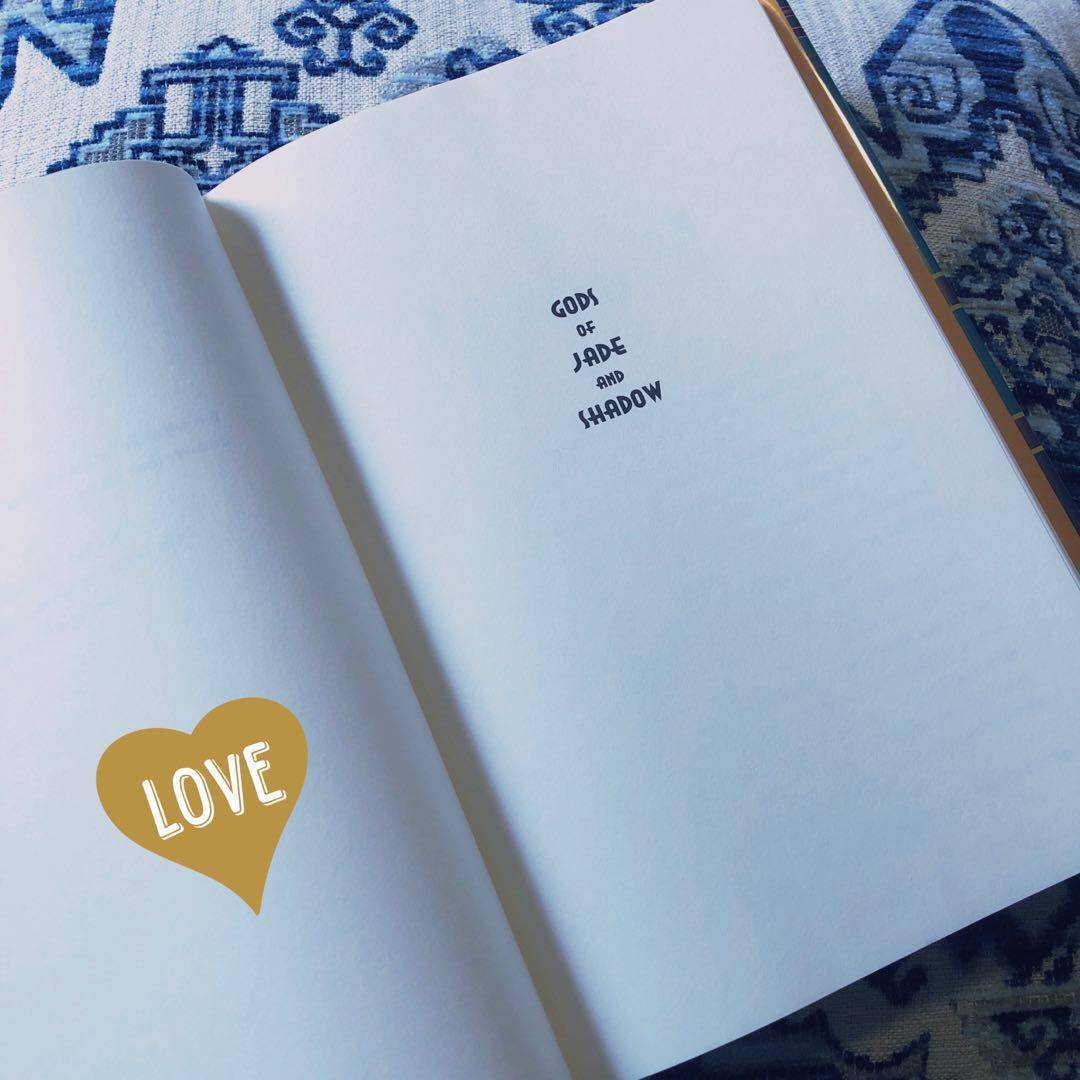 GODS
OF
JADE
AND
SHADOW
LOVE